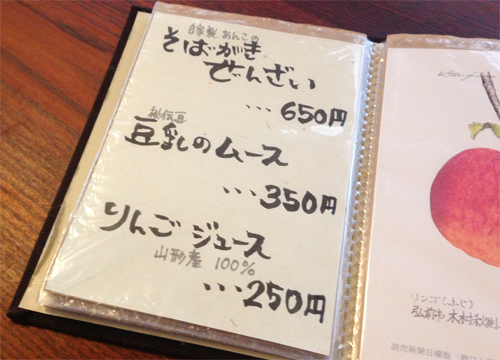 自家製あんこの
そばがき
ぜんざい
・・・650円
秘伝豆
豆乳のムース
・・・350円
りんごジュース
山形産 100%
・・・250円
リンゴ(ふじ)
弘前市・木村
読売新聞日曜版